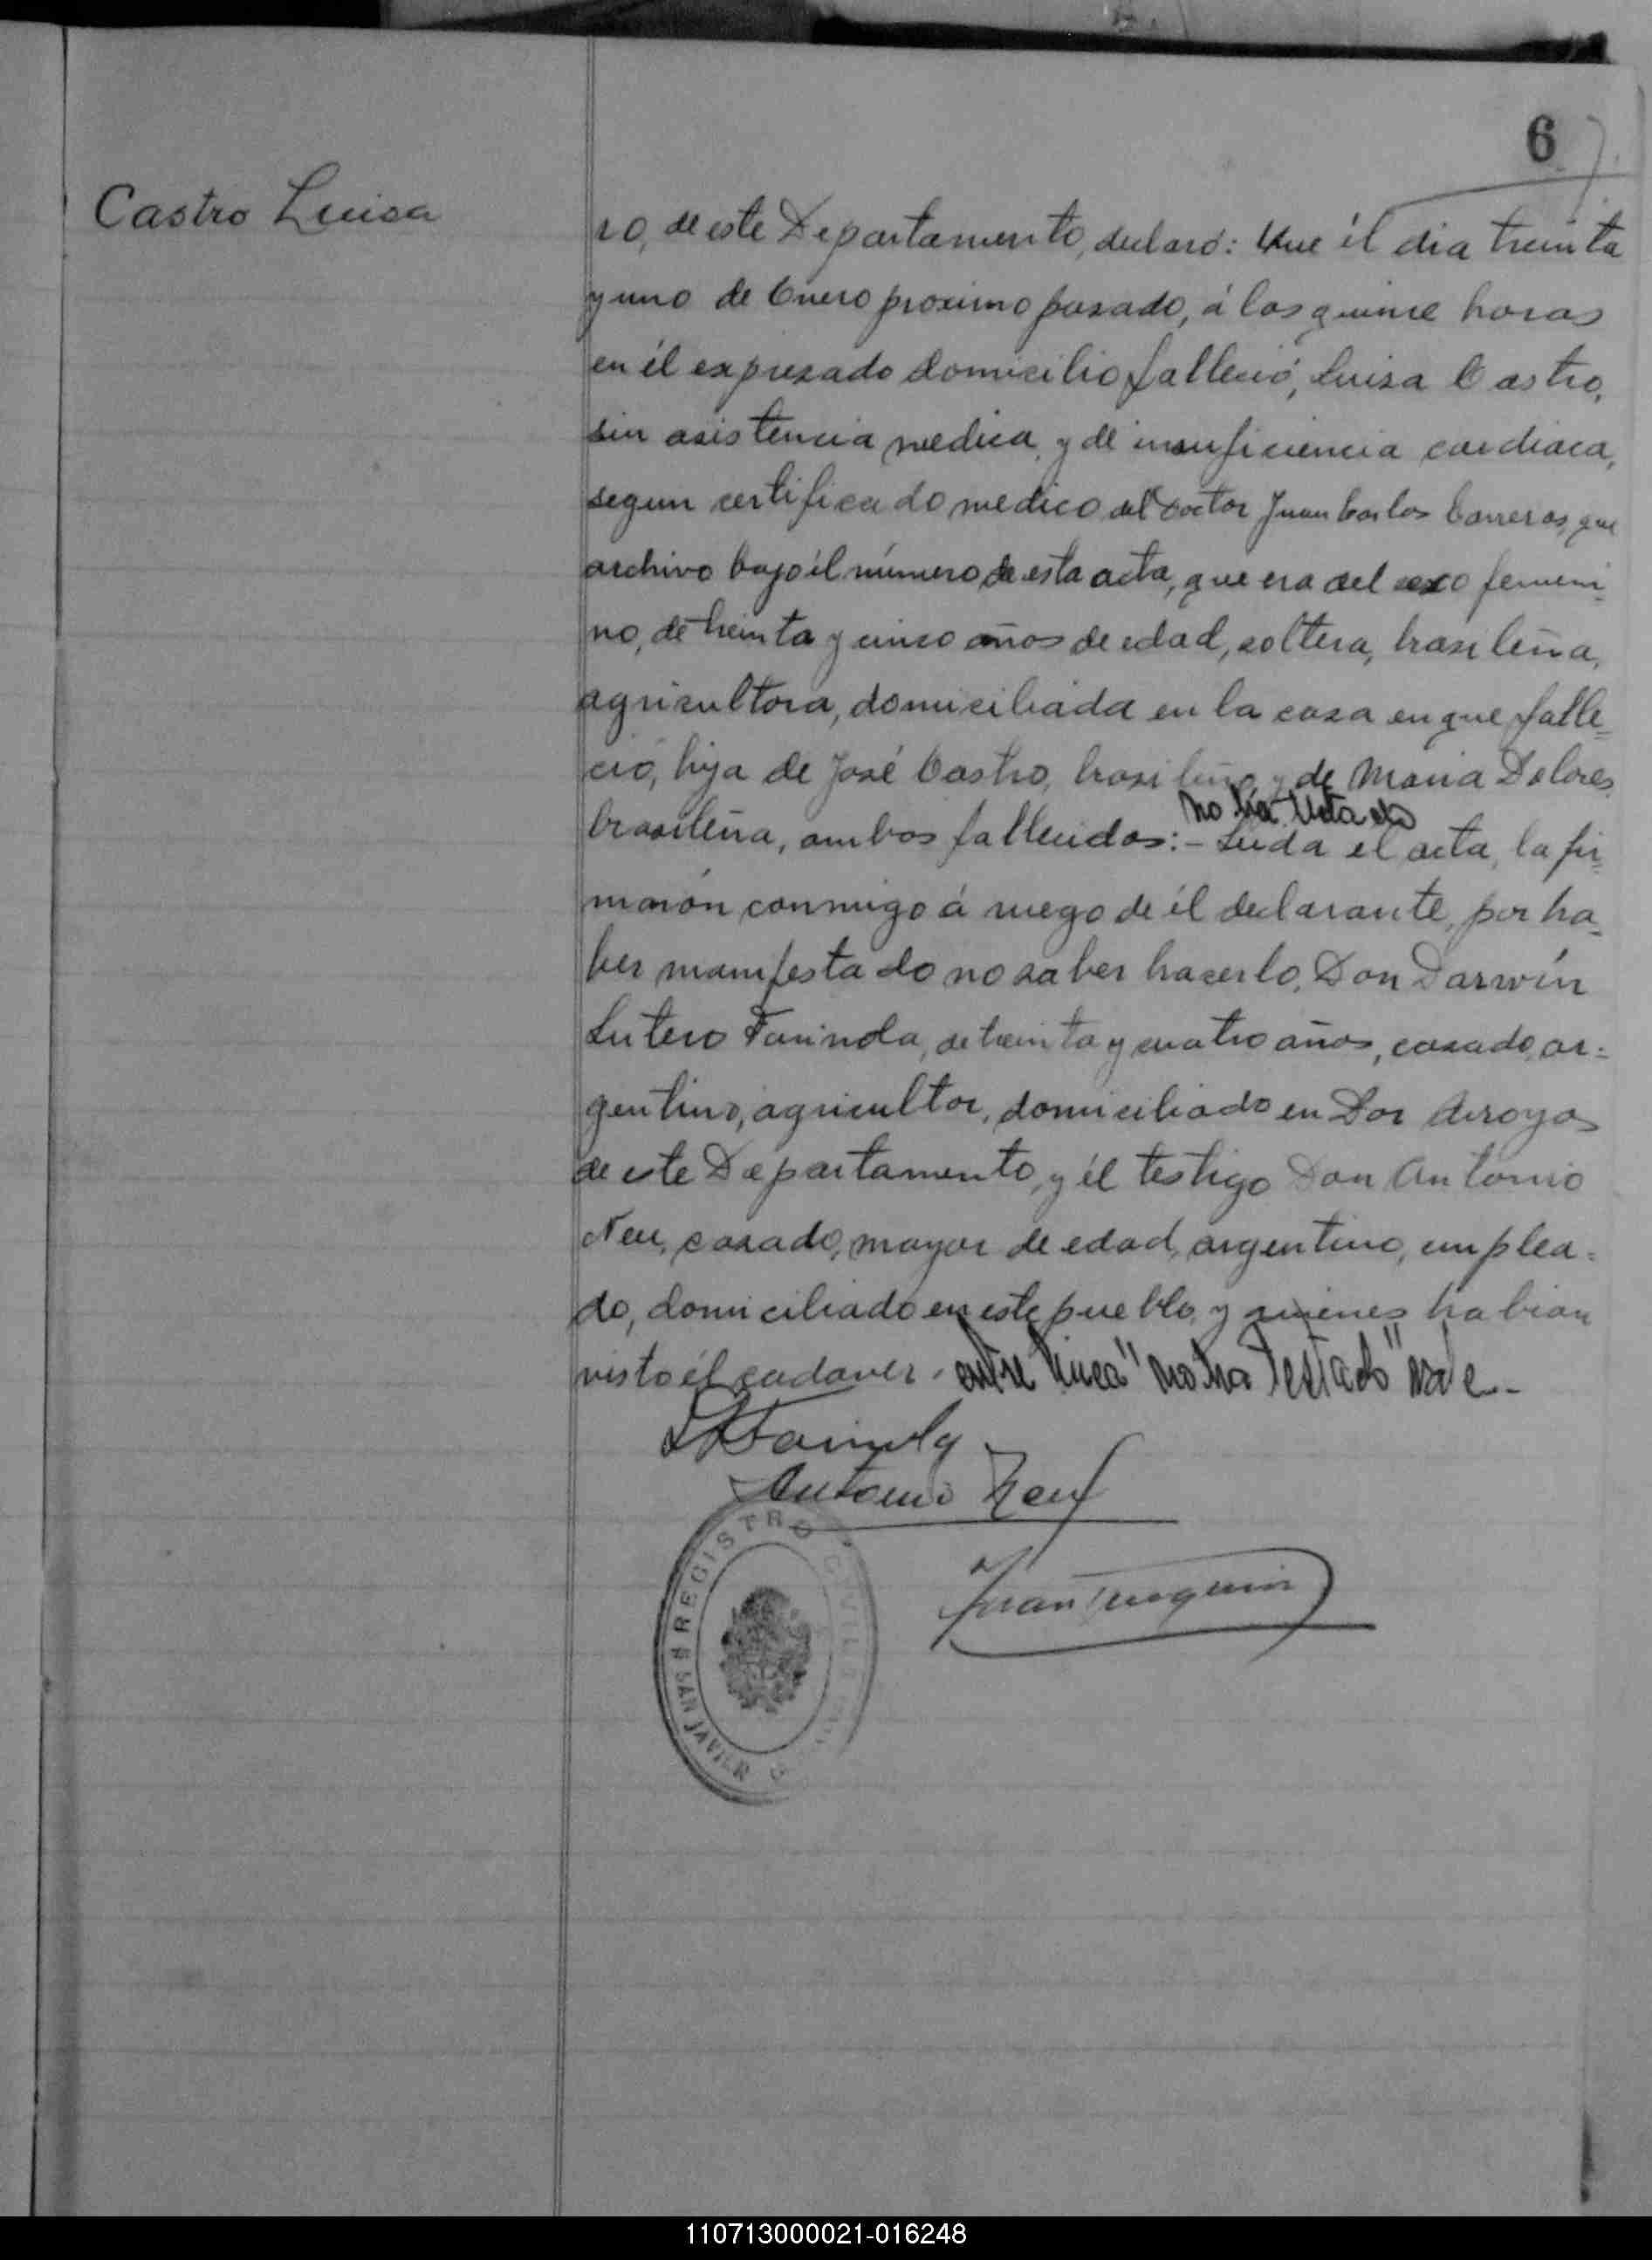 6
Castro Luisa
ro, de este Departamento, declaró: Que él dia treinta
y uno de Enero proximo pasado, á las quince horas
en él expresado domicilio falleció, Luisa Castro,
sin asistencia medica, y de insuficiencia cardiaca,
segun certificado medico del Doctor Juan Carlos Carreras, que
archivo bajo él número de esta acta, que era del sexo femeni-
no, de treinta y cinco años de edad, soltera, brasileña,
agricultora, domiciliada en la casa en que falle=
ció, hija de José Castro, brasileño y de Maria Dolores
no ha testado
brasileña, ambos fallecidos:- Leida el acta, la fir=
maron conmigo á ruego de él declarante, por ha=
ber manifestado no saber hacerlo, Don Darwin
Lutero, de treinta y cuatro años, casado, ar=
gentino, agricultor, domiciliado en Dos Arroyos
de este Departamento, y él testigo Don Antonio
Neu, casado, mayor de edad, argentino, emplea=
do, domiciliado en este pueblo, y quienes habian
visto él cadaver. entre linea "no ha testado" vale-
Antonio Neu
Juan
REGISTRO CIVIL
SAN JAVIER
110713000021-016248